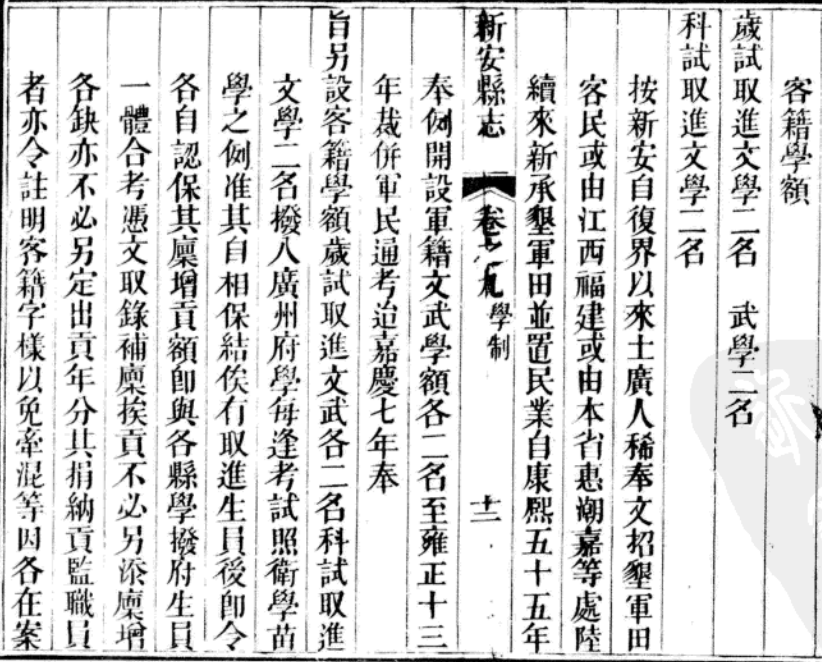 客籍學額
歲試取進文學二名 武學二名
科試取進文學二名
按新安自復界以來土廣人稀奉文招墾軍田
客民或由江西福建或由本省惠潮嘉等處陸
續來新承墾軍田並置民業自康熙五十五年
新安縣志 卷之九 學制 十二
奉例開設軍籍文武學額各二名至雍正十三
年裁併軍民通考迨嘉慶七年奉
旨另設客籍學額歲試取進文武各二名科試取進
文學二名撥入廣州府學每逢考試照衛學苗
學之例准其自相保結俟有取進生員後即令
各自認保其廩增貢額即與各縣學撥府生員
一體合考憑文取錄補廩挨貢不必另添廩增
各缺亦不必另定出貢年分其捐納貢監職員
者亦令註明客籍字樣以免牽混等因各在案